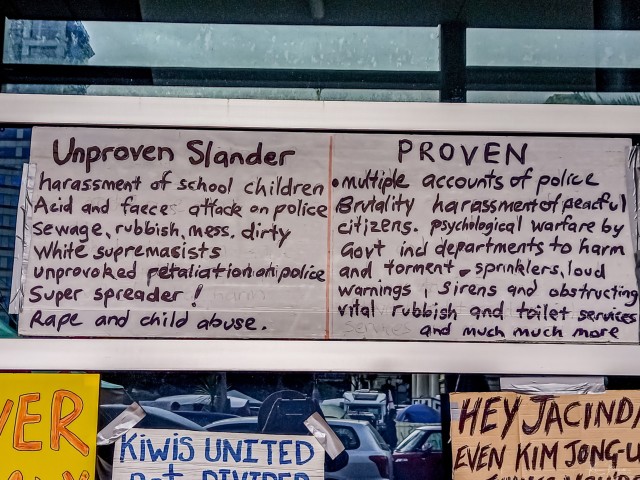 Unproven Slander
harassment of school children
Acid and faeces attack on police
sewage, rubbish, mess, dirty
White supremasists
unprovoked retaliation on police
Super spreader !
Rape and child abuse.
PROVEN
• multiple accounts of police
Brutality harassment of peacful
citizens. psychological warfare by
Govt ind departments to harm
and torment. sprinklers, loud
warnings, sirens and obstructing
vital rubbish and toilet services
and much much more
VER
KIWIS UNITED
not DIVIDED
HEY JACINDA
EVEN KIM JONG-U